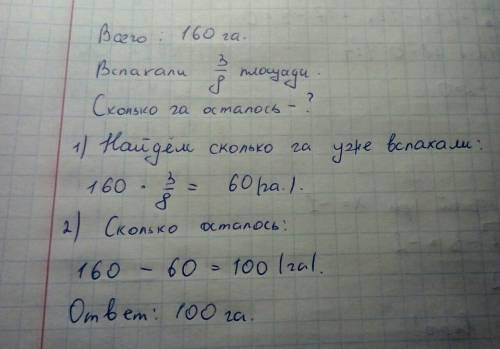 Всего: 160 га.
Вспахали 3/8 площади.
Сколько га осталось - ?
1) Найдём сколько га уже вспахали:
160 · 3/8 = 60 (га).
2) Сколько осталось:
160 - 60 = 100 (га).
Ответ: 100 га.